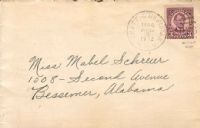 Miss Mabel Schreier
1008 - Second Avenue
Bessemer, Alabama